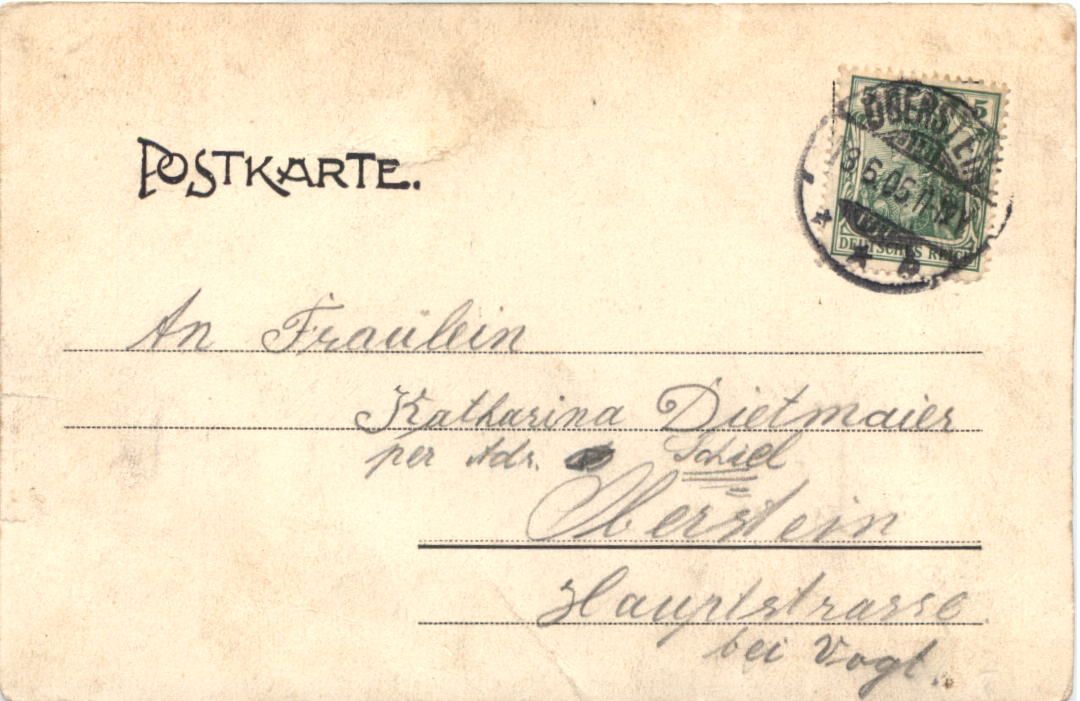 POSTKARTE.
5
OBERSTEIN
8.6.05.11-12V
DEUTSCHES REICH
b
An Fräulein
Katharina Dietmaier
per Adr. Schiel
Oberstein
Hauptstrasse
bei Vogt.